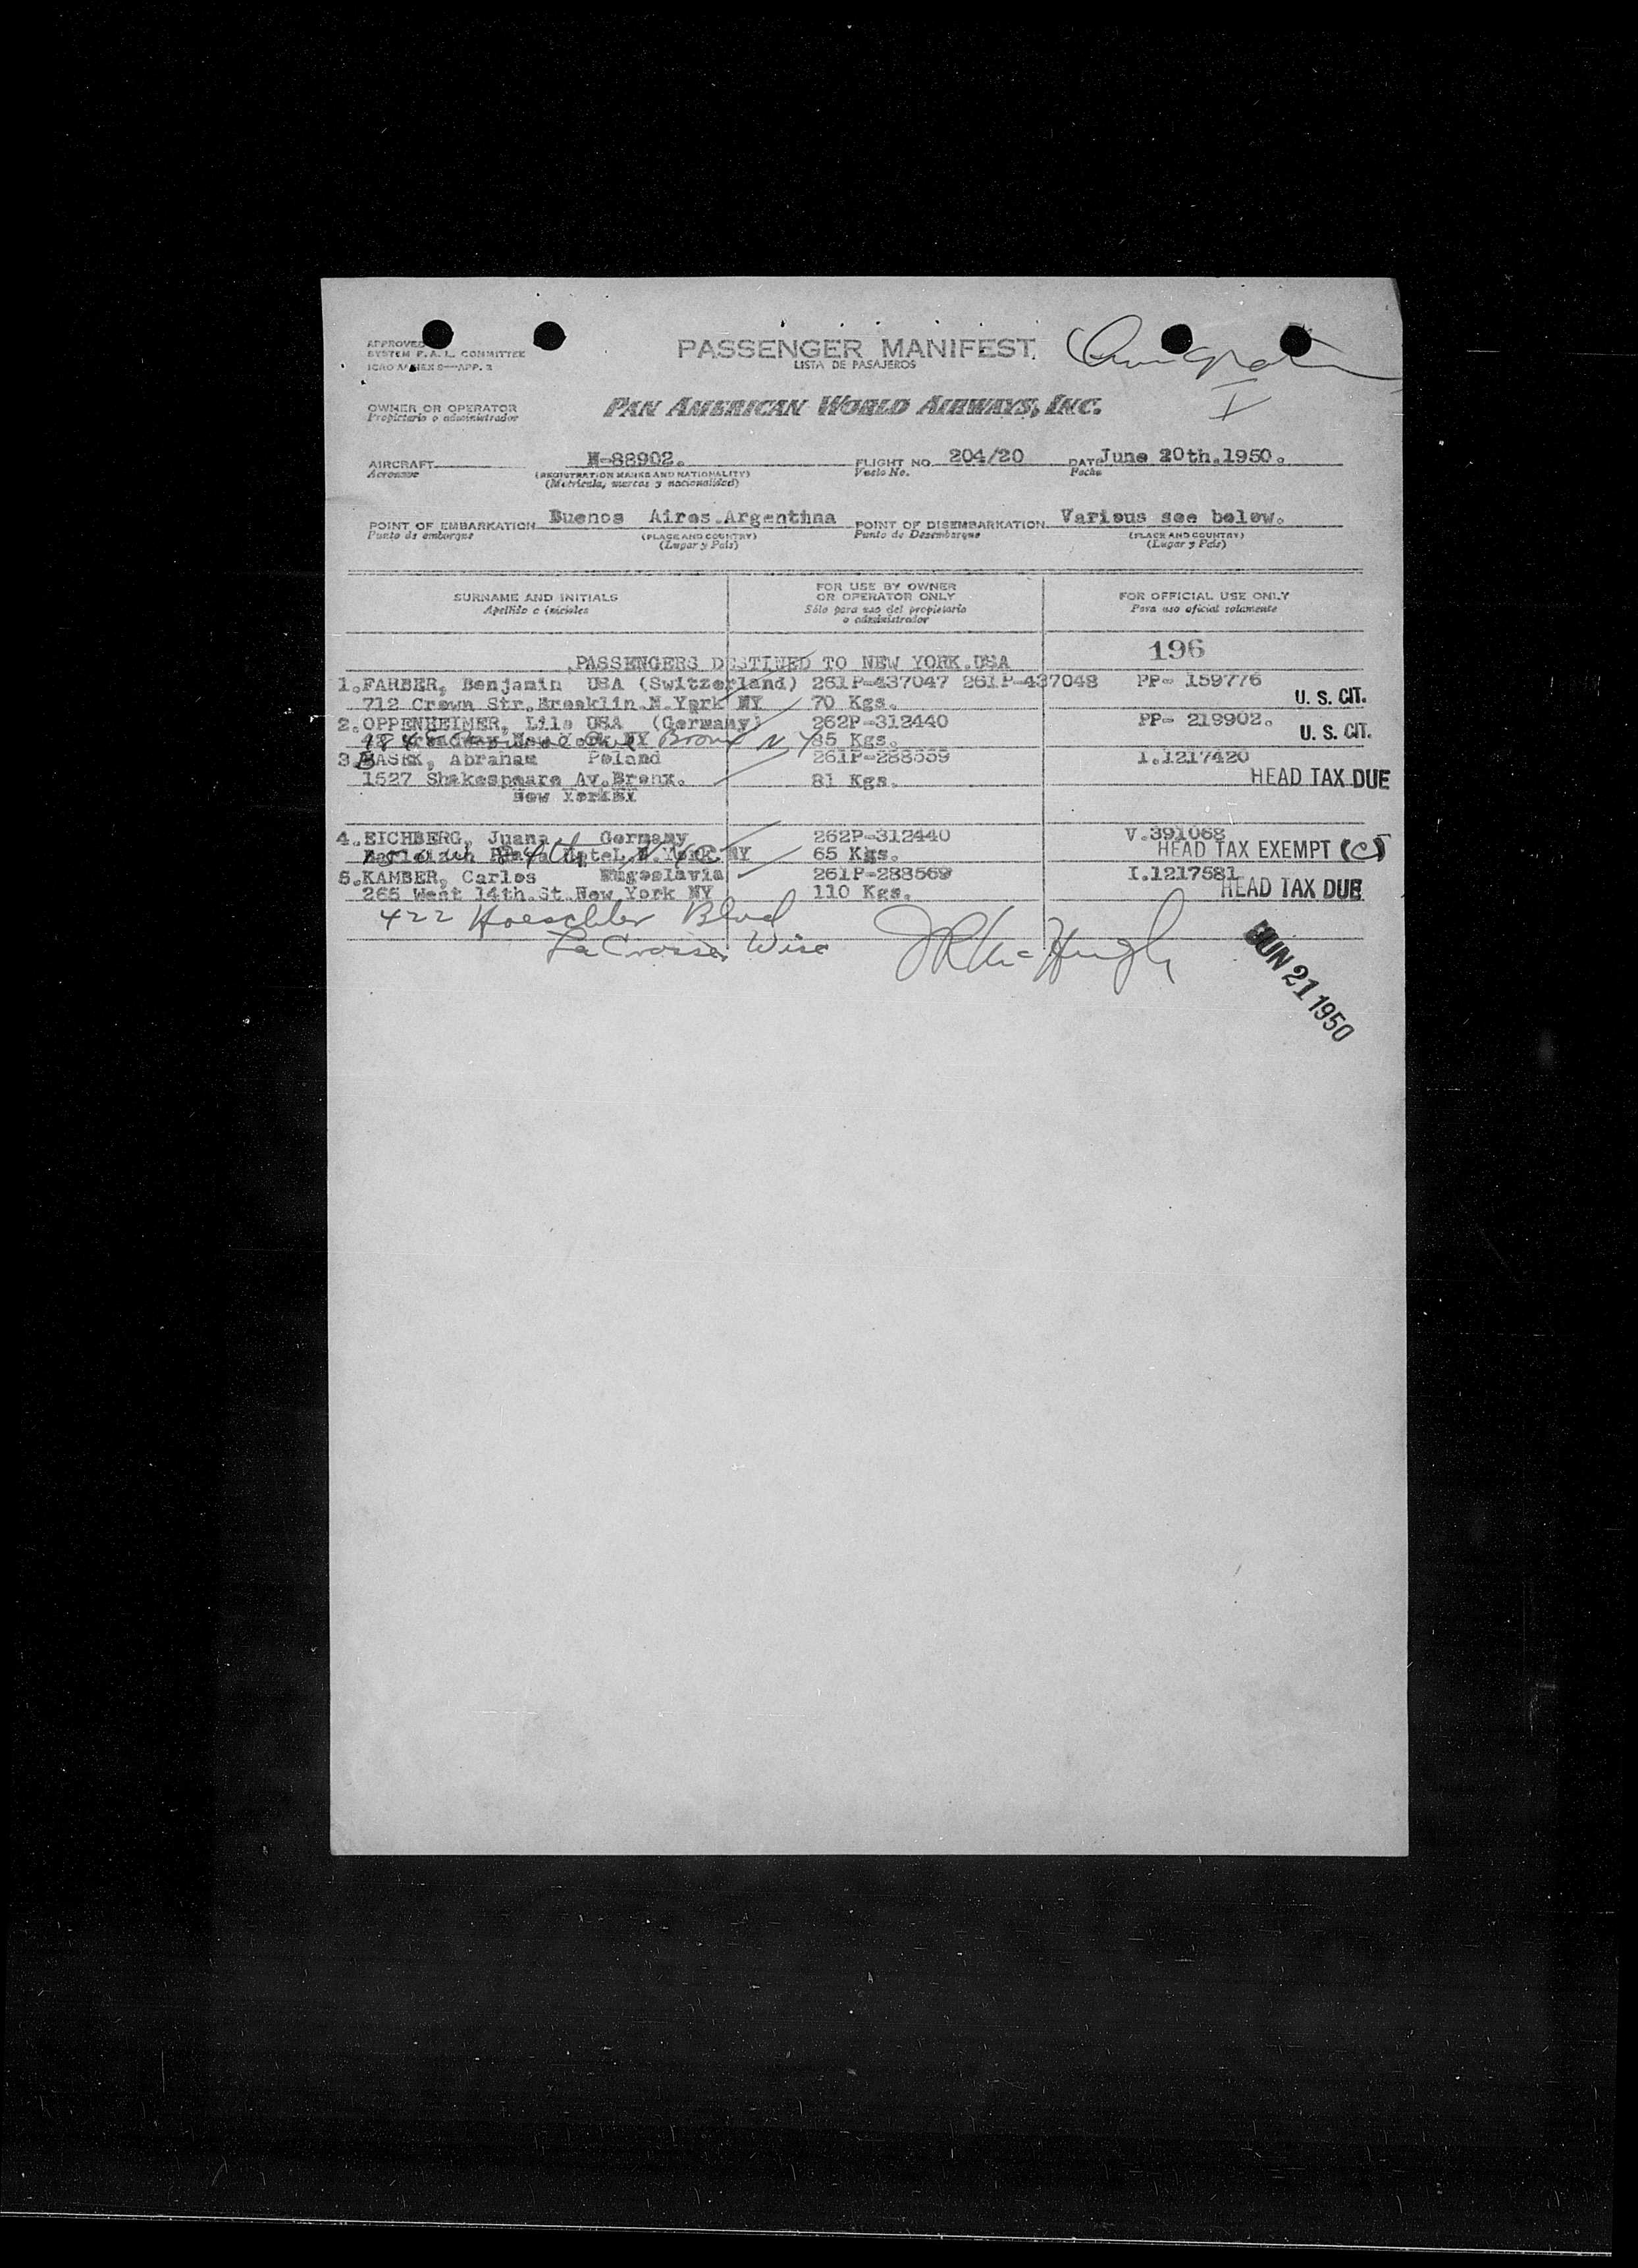 APPROVED
SYSTEM F. A. L. COMMITTEE
ICAO ANNEX 9—APP. 3
PASSENGER MANIFEST
LISTA DE PASAJEROS
OWNER OR OPERATOR
Propietario o administrador
PAN AMERICAN WORLD AIRWAYS, INC.
AIRCRAFT N-88902. FLIGHT NO. 204/20 DATE June 20th.1950.
Aeronave (REGISTRATION MARKS AND NATIONALITY) Vuelo No. Fecha
(Matrícula, marcas y nacionalidad)
POINT OF EMBARKATION Buenos Aires.Argenthna POINT OF DISEMBARKATION Various see below.
Punto de embarque (PLACE AND COUNTRY) Punto de Desembarque (PLACE AND COUNTRY)
(Lugar y País) (Lugar y País)
SURNAME AND INITIALS FOR USE BY OWNER OR OPERATOR ONLY FOR OFFICIAL USE ONLY
Apellido e iniciales Sólo para uso del propietario o administrador Para uso oficial solamente
196
PASSENGERS DESTINED TO NEW YORK.USA
1.FARBER, Benjamin USA (Switzerland) 261P-437047 261P-437048 PP- 159776
712 Crown Str.Brooklin.N.York NY 70 Kgs. U. S. CIT.
2.OPPENHEIMER, Lilo USA (Germany) 262P-312440 PP- 219902.
Bronx N Y 85 Kgs. U. S. CIT.
3.BASEK, Abraham Poland 261P-288559 I.1217420
1527 Shakespeare Av.Bronx. 81 Kgs. HEAD TAX DUE
New YorkNY
4.EICHBERG, Juana Germany 262P-312440 V.391068
84th N Y C NY 65 Kgs. HEAD TAX EXEMPT (C)
5.KAMBER, Carlos Yugoslavia 261P-288569 I.1217581
265 West 14th.St.New York NY 110 Kgs. HEAD TAX DUE
422 Hoeschler Blvd
La Crosse, Wisc
JR McHugh
JUN 21 1950